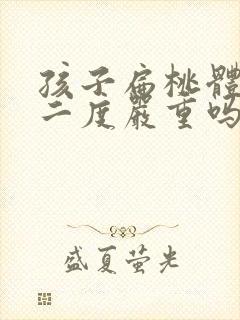 孩子扁桃體
二度嚴重吗
盛夏萤光